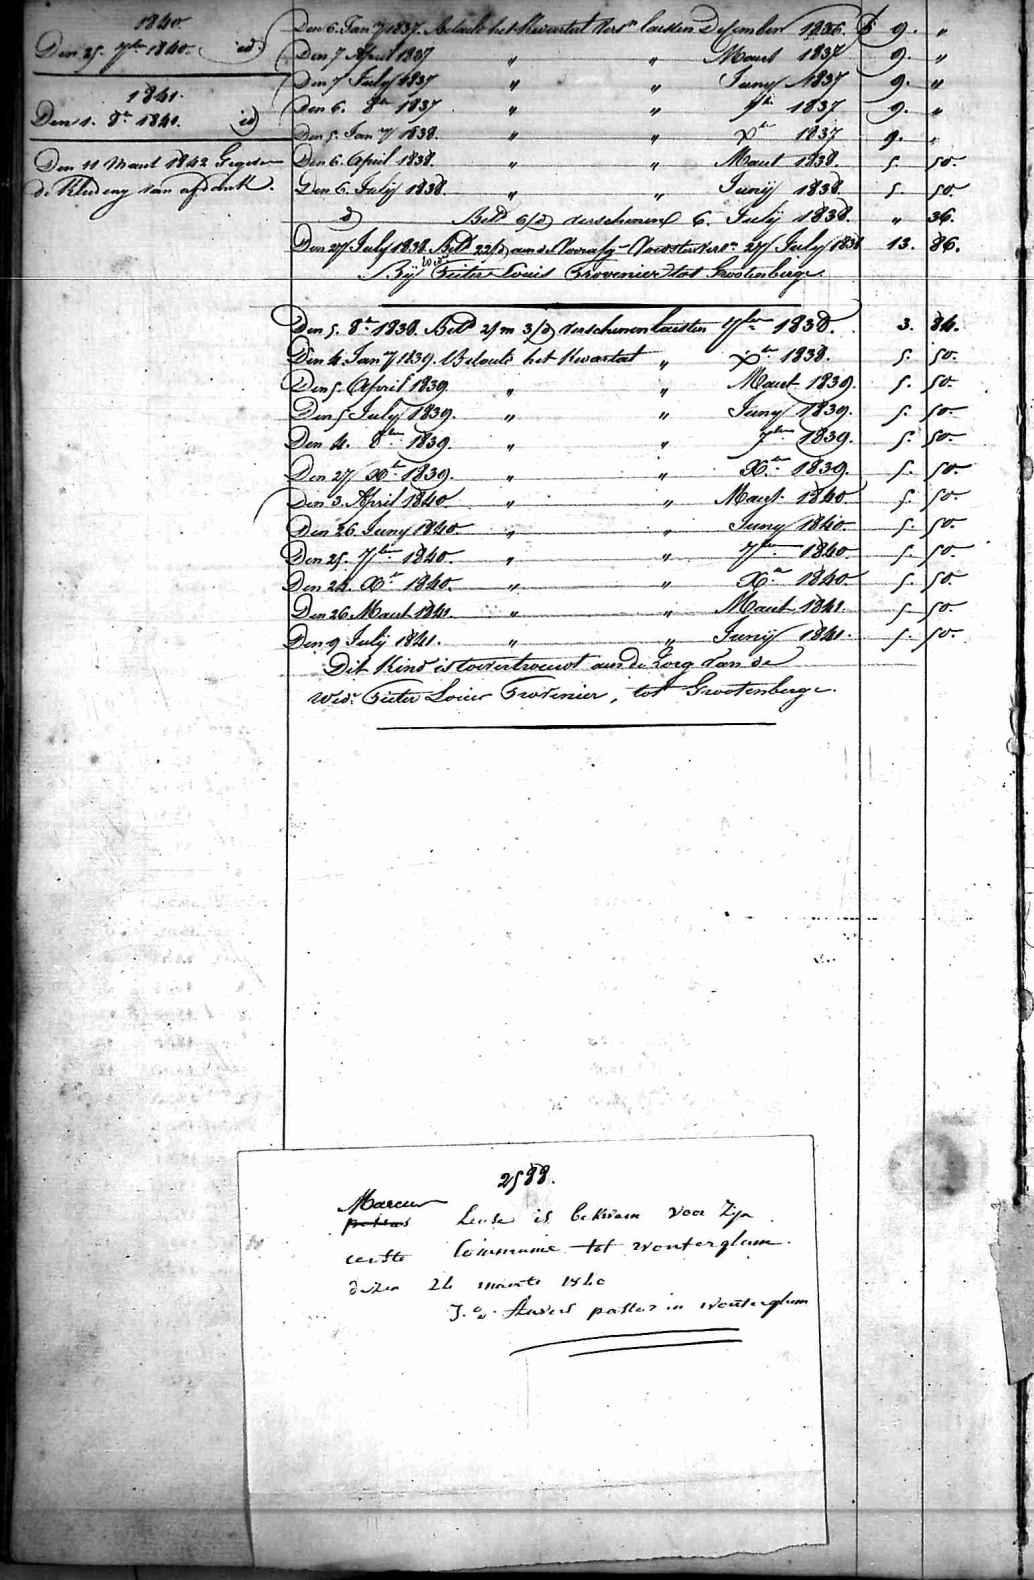 1840
Den 25. 7ber 1840. id
1841.
Den 1. 8er 1841. id
Den 11 Maert 1842 Gegeven
de Kledeng van afdank.
Den 6. Jan y 1837. Betaelt het Kwartael vers n laesten Desember 1836. 9. "
Den 7 April 1837 " " Maert 1837 9. "
Den 7 July 1837 " " Juny 1837 9. "
Den 6. 8er 1837 " " 7er 1837 9. "
Den 5. Jan y 1838. " " Xer 1837 9. "
Den 6. April 1838. " " Maert 1838. 5. 50.
Den 6. Julij 1838. " " Junij 1838 5. 50.
d Betd 6/d verschenen 6. Julij 1838. " 36.
Den 27 July 1838. Betd 22/d aan de Voedster vers n 27 July 1838 13. 86.
Bij Wed e Pieter Louis Provenier tot Grootenberge.
Den 5. 8er 1838. Betd 2/m 3/d verschenen laesten 7ber 1838. 3. 84.
Den 4. Jan y 1839. Betaelt het Kwartael " Xer 1838. 5. 50.
Den 5. April 1839 " " Maert 1839. 5. 50.
Den 5 July 1839. " " Juny 1839. 5. 50.
Den 4. 8ber 1839. " " 7ber 1839. 5. 50.
Den 27 Xer 1839. " " Xer 1839. 5. 50.
Den 3. April 1840 " " Maert 1840 5. 50.
Den 26. Juny 1840. " " Juny 1840 5. 50.
Den 25. 7ber 1840. " " 7ber 1840 5. 50.
Den 24. Xer 1840. " " Xer 1840 5. 50.
Den 26 Maert 1841. " " Maert 1841. 5. 50.
Den 9 Julij 1841. " " Junij 1841. 5. 50.
Dit Kind is toevertrouwt aen de Zorg van de
Wed e Pieter Louis Provenier, tot Grootenberge.
2588.
Marcus
Leuse is bekwam voor zyn
eerste Communie tot wouterghem.
dezen 24 maerte 1840
J. pastor in wouterghem